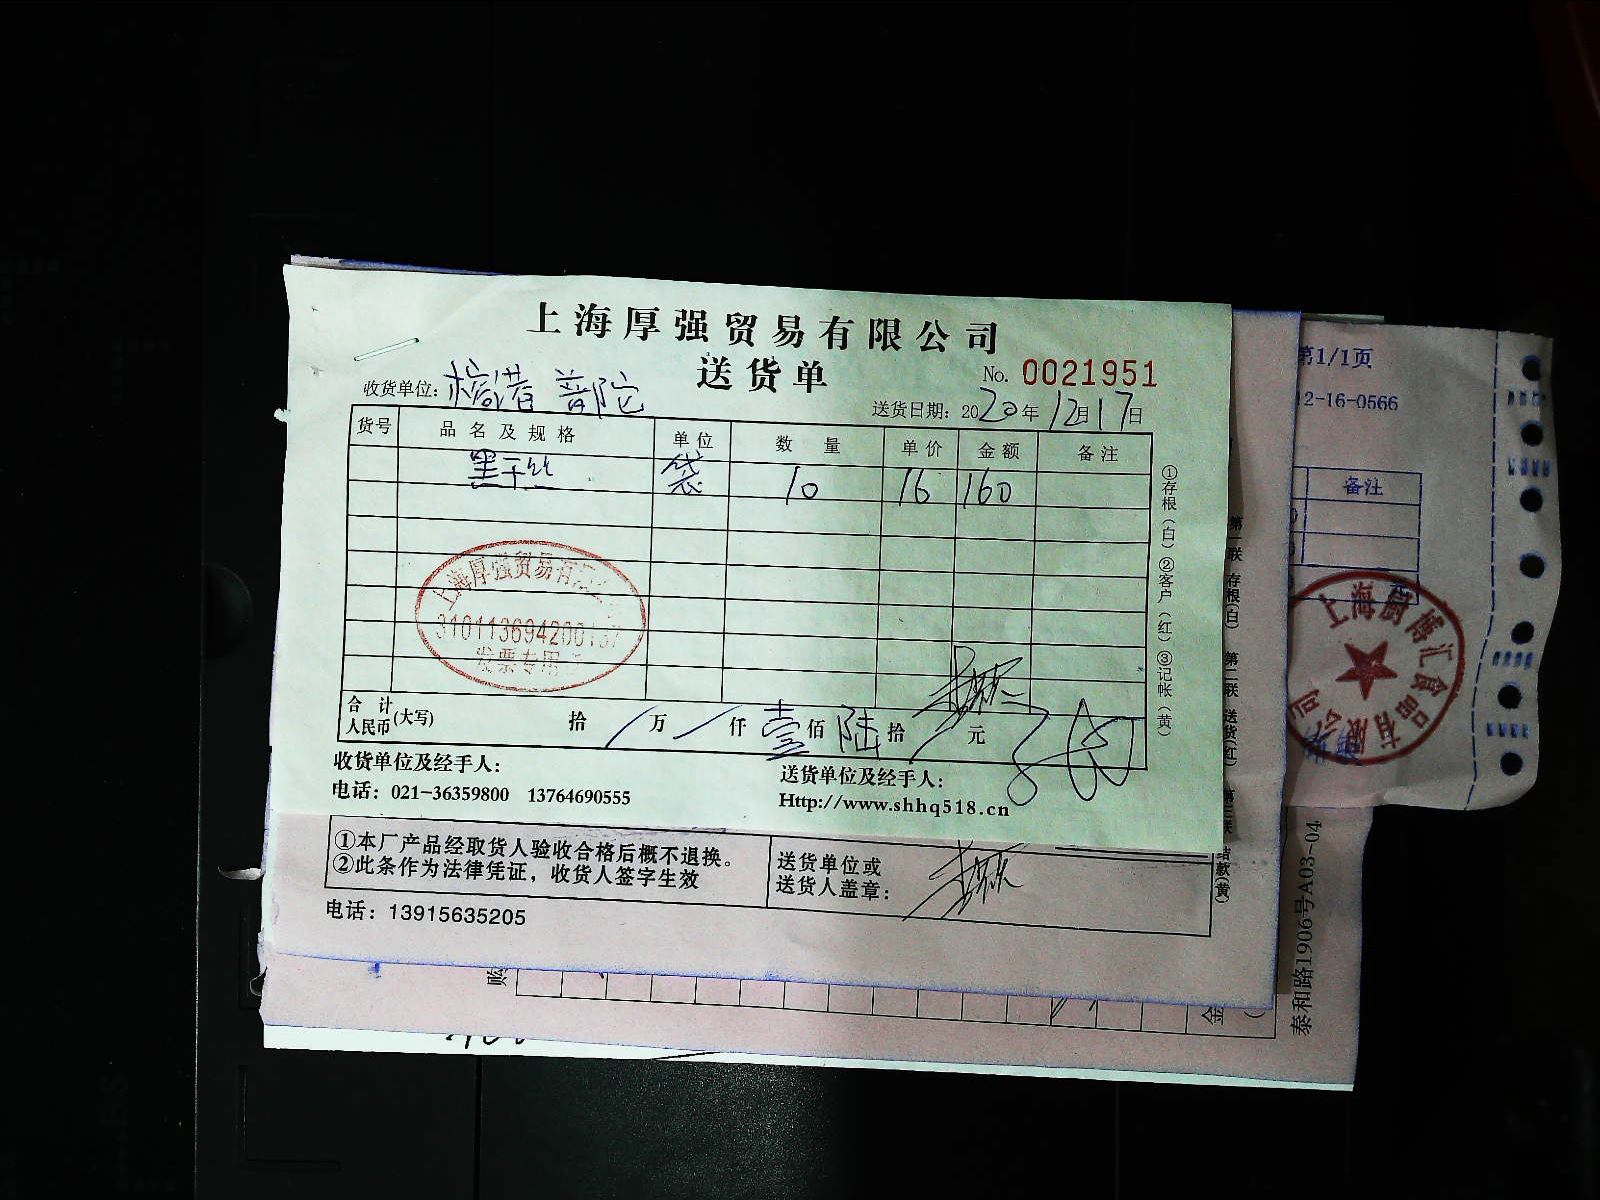 上海厚强贸易有限公司
送货单
No. 0021951
收货单位: 榕港 普陀
送货日期: 2020年12月17日
货号 品名及规格 单位 数量 单价 金额 备注
黑干丝 袋 10 16 160
上海厚强贸易有限公司
310113694200137
发票专用
合计人民币(大写) 拾 / 万 / 仟 壹 佰 陆 拾 / 元
收货单位及经手人:
送货单位及经手人:
电话: 021-36359800 13764690555
Http://www.shhq518.cn
①存根(白) ②客户(红) ③记帐(黄)
①本厂产品经取货人验收合格后概不退换。
②此条作为法律凭证，收货人签字生效
送货单位或
送货人盖章:
电话: 13915635205
第一联 存根(白) 第二联 送货(红) 第三联 结款(黄)
购
金
泰和路1906号A03-04
第1/1页
12-16-0566
备注
上海厨博汇食品有限公司